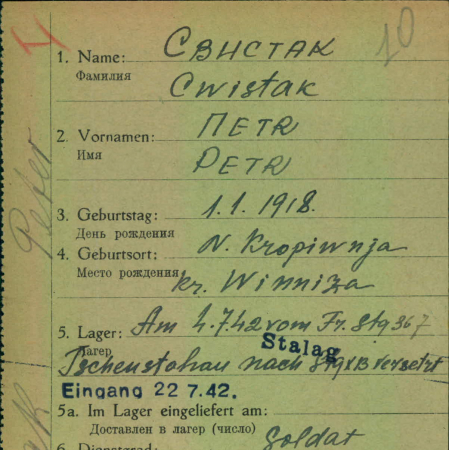 10
1. Name: СВИСТАК
Фамилия
Cwistak
2. Vornamen: ПЕТR
Имя
PETR
Peter
3. Geburtstag: 1.1.1918.
День рождения
4. Geburtsort: N. Kropiwnja
Место рождения kr. Winniza
5. Lager: Am 4.7.42 vom Fr. Stg 367
Лагерь
Stalag
Tschenstohau nach Stg XB versetzt
Eingang 22 7.42.
5a. Im Lager eingeliefert am:
Доставлен в лагерь (число)
Soldat
6. Dienstgrad: